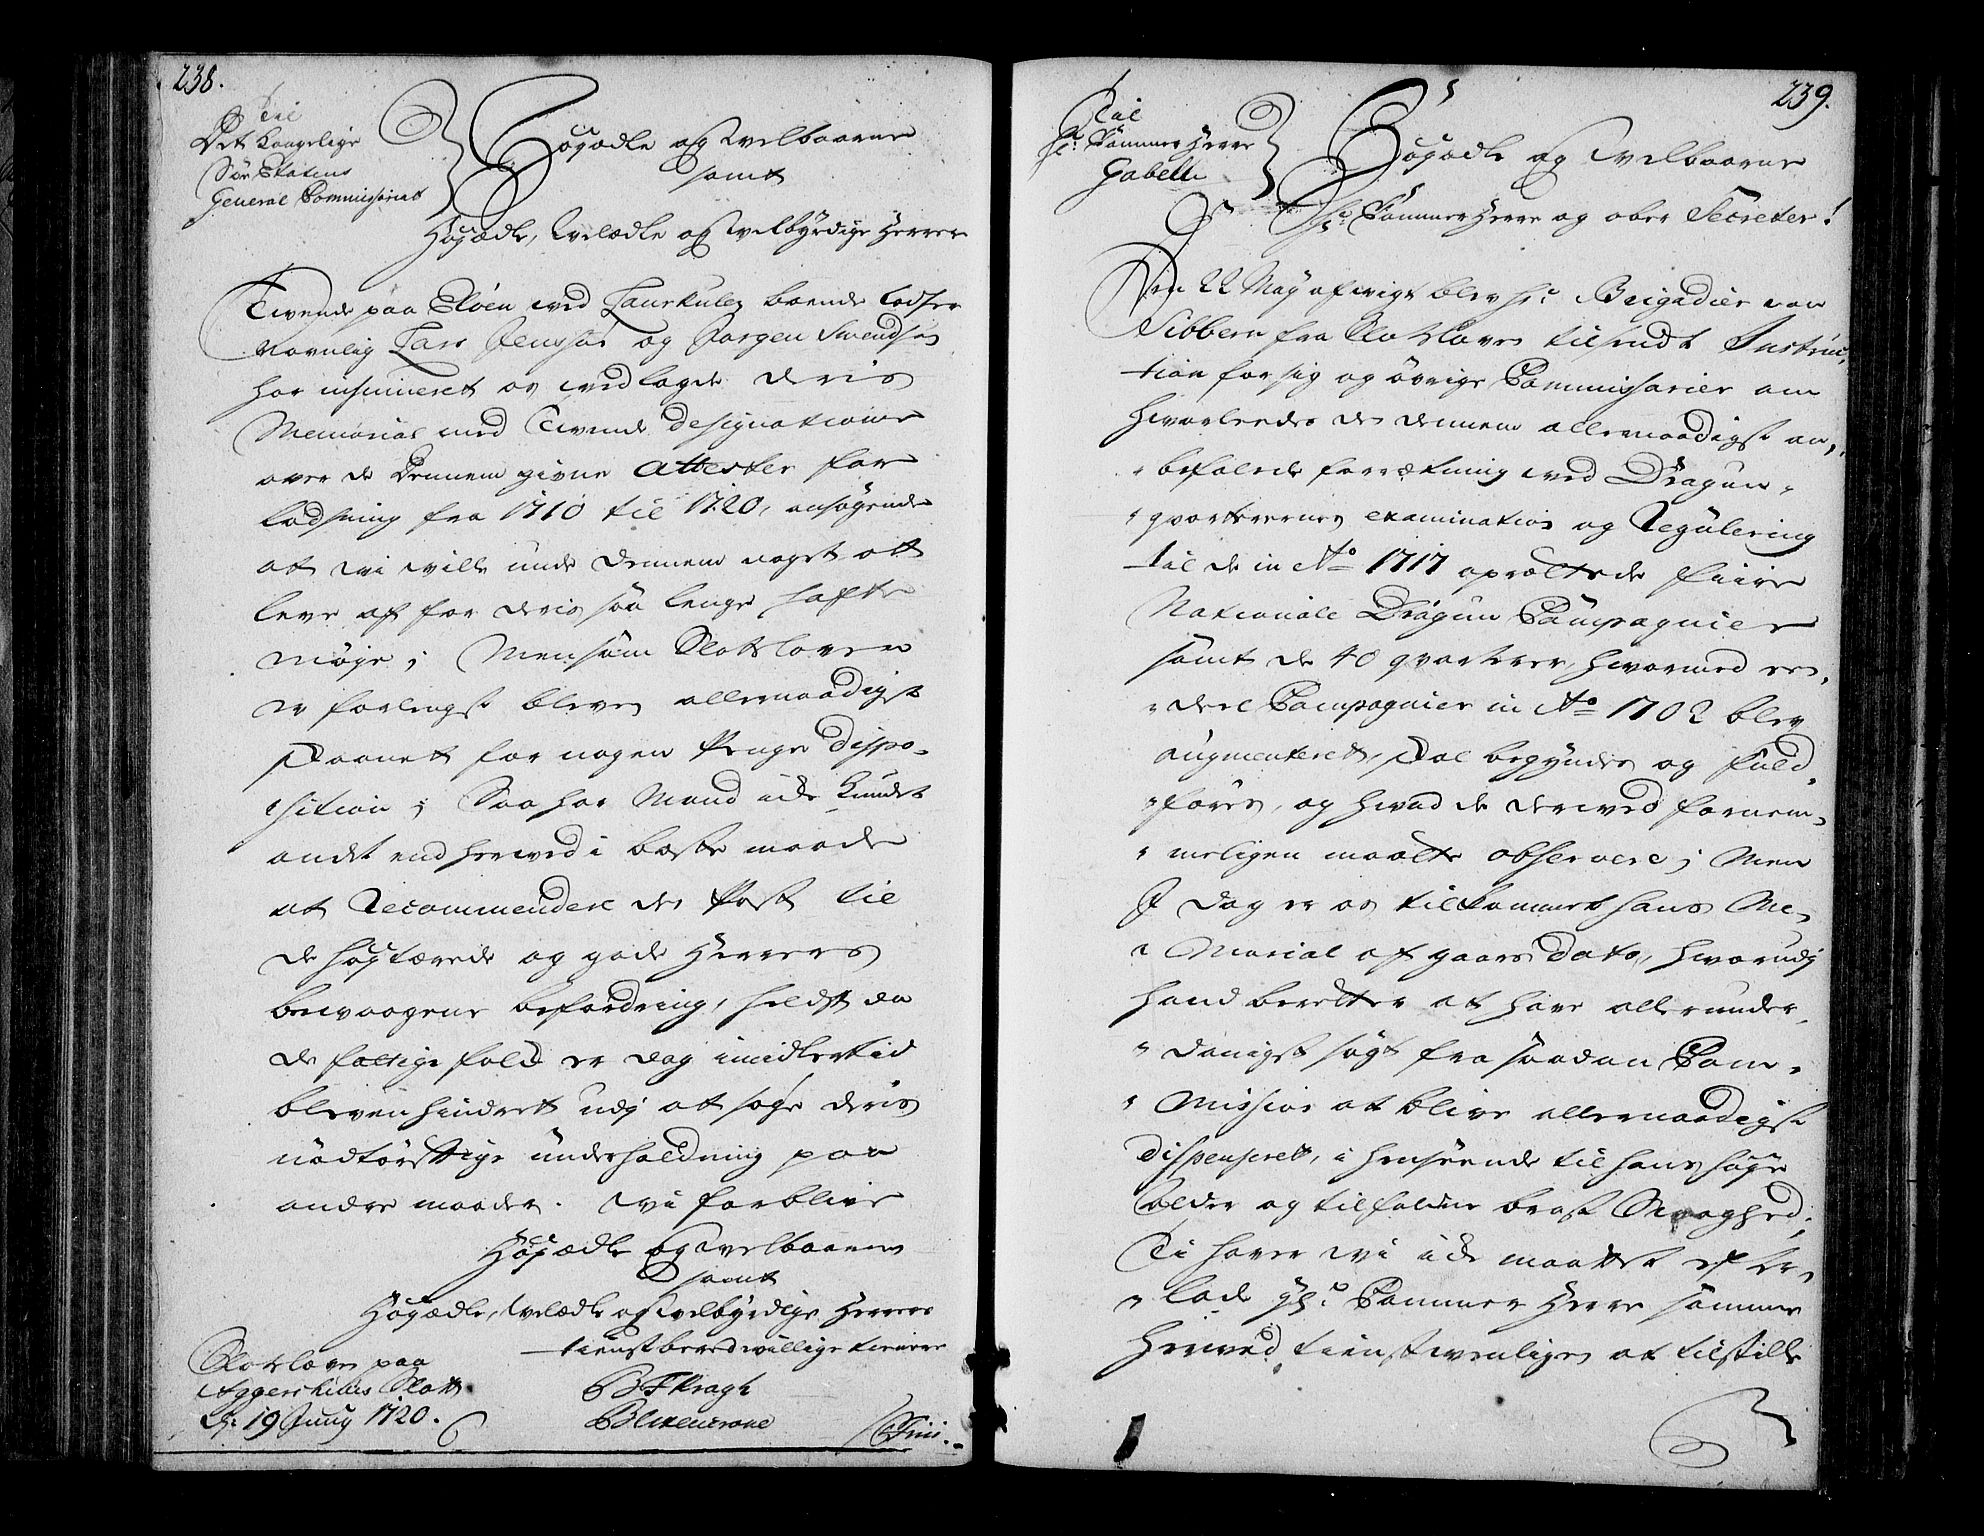 238.
Til
Det Kongelige
Söe Etatens
General Commissariat
Høgædle og Welbaarne
samt
Høgædle, Welædle og Welbyrdige Herrer
Tvende paa Øloen ved Laurkulen boende Lodser
navnlig Lars Jenssøn og Jørgen Swendsøn
har insinueret os vedlagde deris
Memorial med Tvende designationer
over de dennem givne attester for
lodsning fra 1710 til 1720, ansøgende
at wi wille unde dennem noget at
leve af for deris saa lenge hafte
møye; Mensom Slotsloven
er forlengst bleven allernaadigst
skaanet for nogen Penge dispo-
sition; Saa har Mand icke kundet
andet end herved i beste maade
at Recommendere des Post til
de høgtærede og gode Herrers
bewaagene befordring, heldst da
de fattige folk er dog imidlertid
bleven hindret udj at søge deris
nødtørfftige underholdning paa
andre maader. Wi forblive
Høgædle og Welbaarne
samt
Høgædle, Welædle og Welbyrdige Herrers
tienstberedwillige tienere
Slotsloven paa
Aggershuus Slott
d: 19 Junij 1720.
B F Kragh
Blixencrone
239.
Til
Hr. Cammer Herre
Gabell
Høgædle og Welbaarne
Hr. Cammer Herre og ober Secreter!
Den 22 May afvigt blev Hr. Brigadier von
Sibbern fra Slotsloven tilsendt Instruc-
tion for sig og övrige Commissarier om
hvorledes de dennem allernaadigst an-
befalede forretning ved Dragun-
qvarterernes examination og Regulering
til de in Ao 1717 oprættede fiire
Nationale Dragun Compagnier
samt de 40 qvarterer, hvormed en
deel Compagnier in Ao 1702 blev
augmenteret, skal begyndes og fuld-
føres, og hvad de derved fornem-
meligen maatte observere; Men
I dag er os tilkommet hans Me-
morial af gaars dato, hvorudj
hand beretter at have allerunder-
danigst søgt fra saadan Com-
mission at blive allernaadigst
dispenseret, i henseende til hans høye
alder og tilfaldne brøst Svaghed;
Ti haver wi icke maattet efter-
lade Hr. Cammer Herre samme
herved tienstvenligen at tilstille